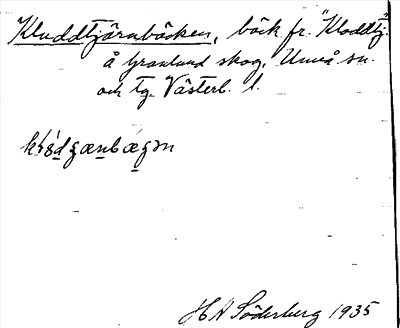 Kluddtjärnbäcken, bäck fr. "Kloddtj."
å Granlund skog, Umeå sn.
och tg. Västerb. l.
H A Söderberg 1935